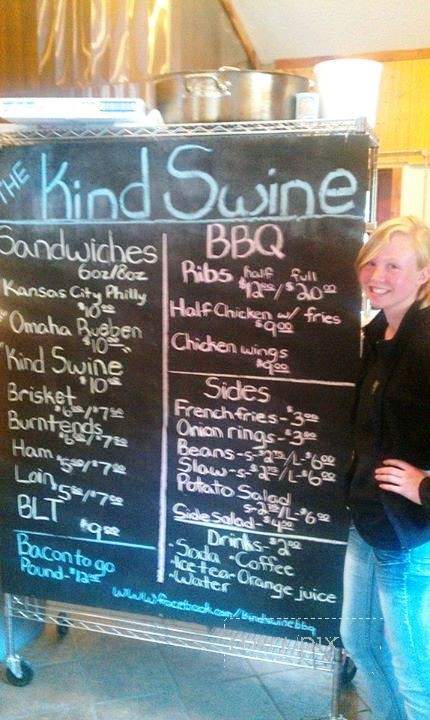 THE Kind Swine
Sandwiches
6oz/8oz
Kansas City Philly
$10.00
"Omaha Rueben
$10.00
"Kind Swine
$10.00
Brisket
$6.00/$7.50
Burntends
$6.00/$7.50
Ham
$5.00/$7.00
Loin
$5.50/$7.00
BLT
$9.00
Bacon to go
Pound-
BBQ
Ribs half full
$12.00/$20.00
Half Chicken w/ fries
$9.00
Chicken wings
$9.00
Sides
French fries - $3.00
Onion rings - $3.00
Beans-s-$2.75/L-$6.00
Slaw-s-$2.75/L-$6.00
Potato Salad
s-2.75/L-$6.00
Side salad - $4.00
Drinks-$2.00
-Soda -Coffee
-Ice tea- Orange juice
-Water
www.facebook.com/kindswinebbq